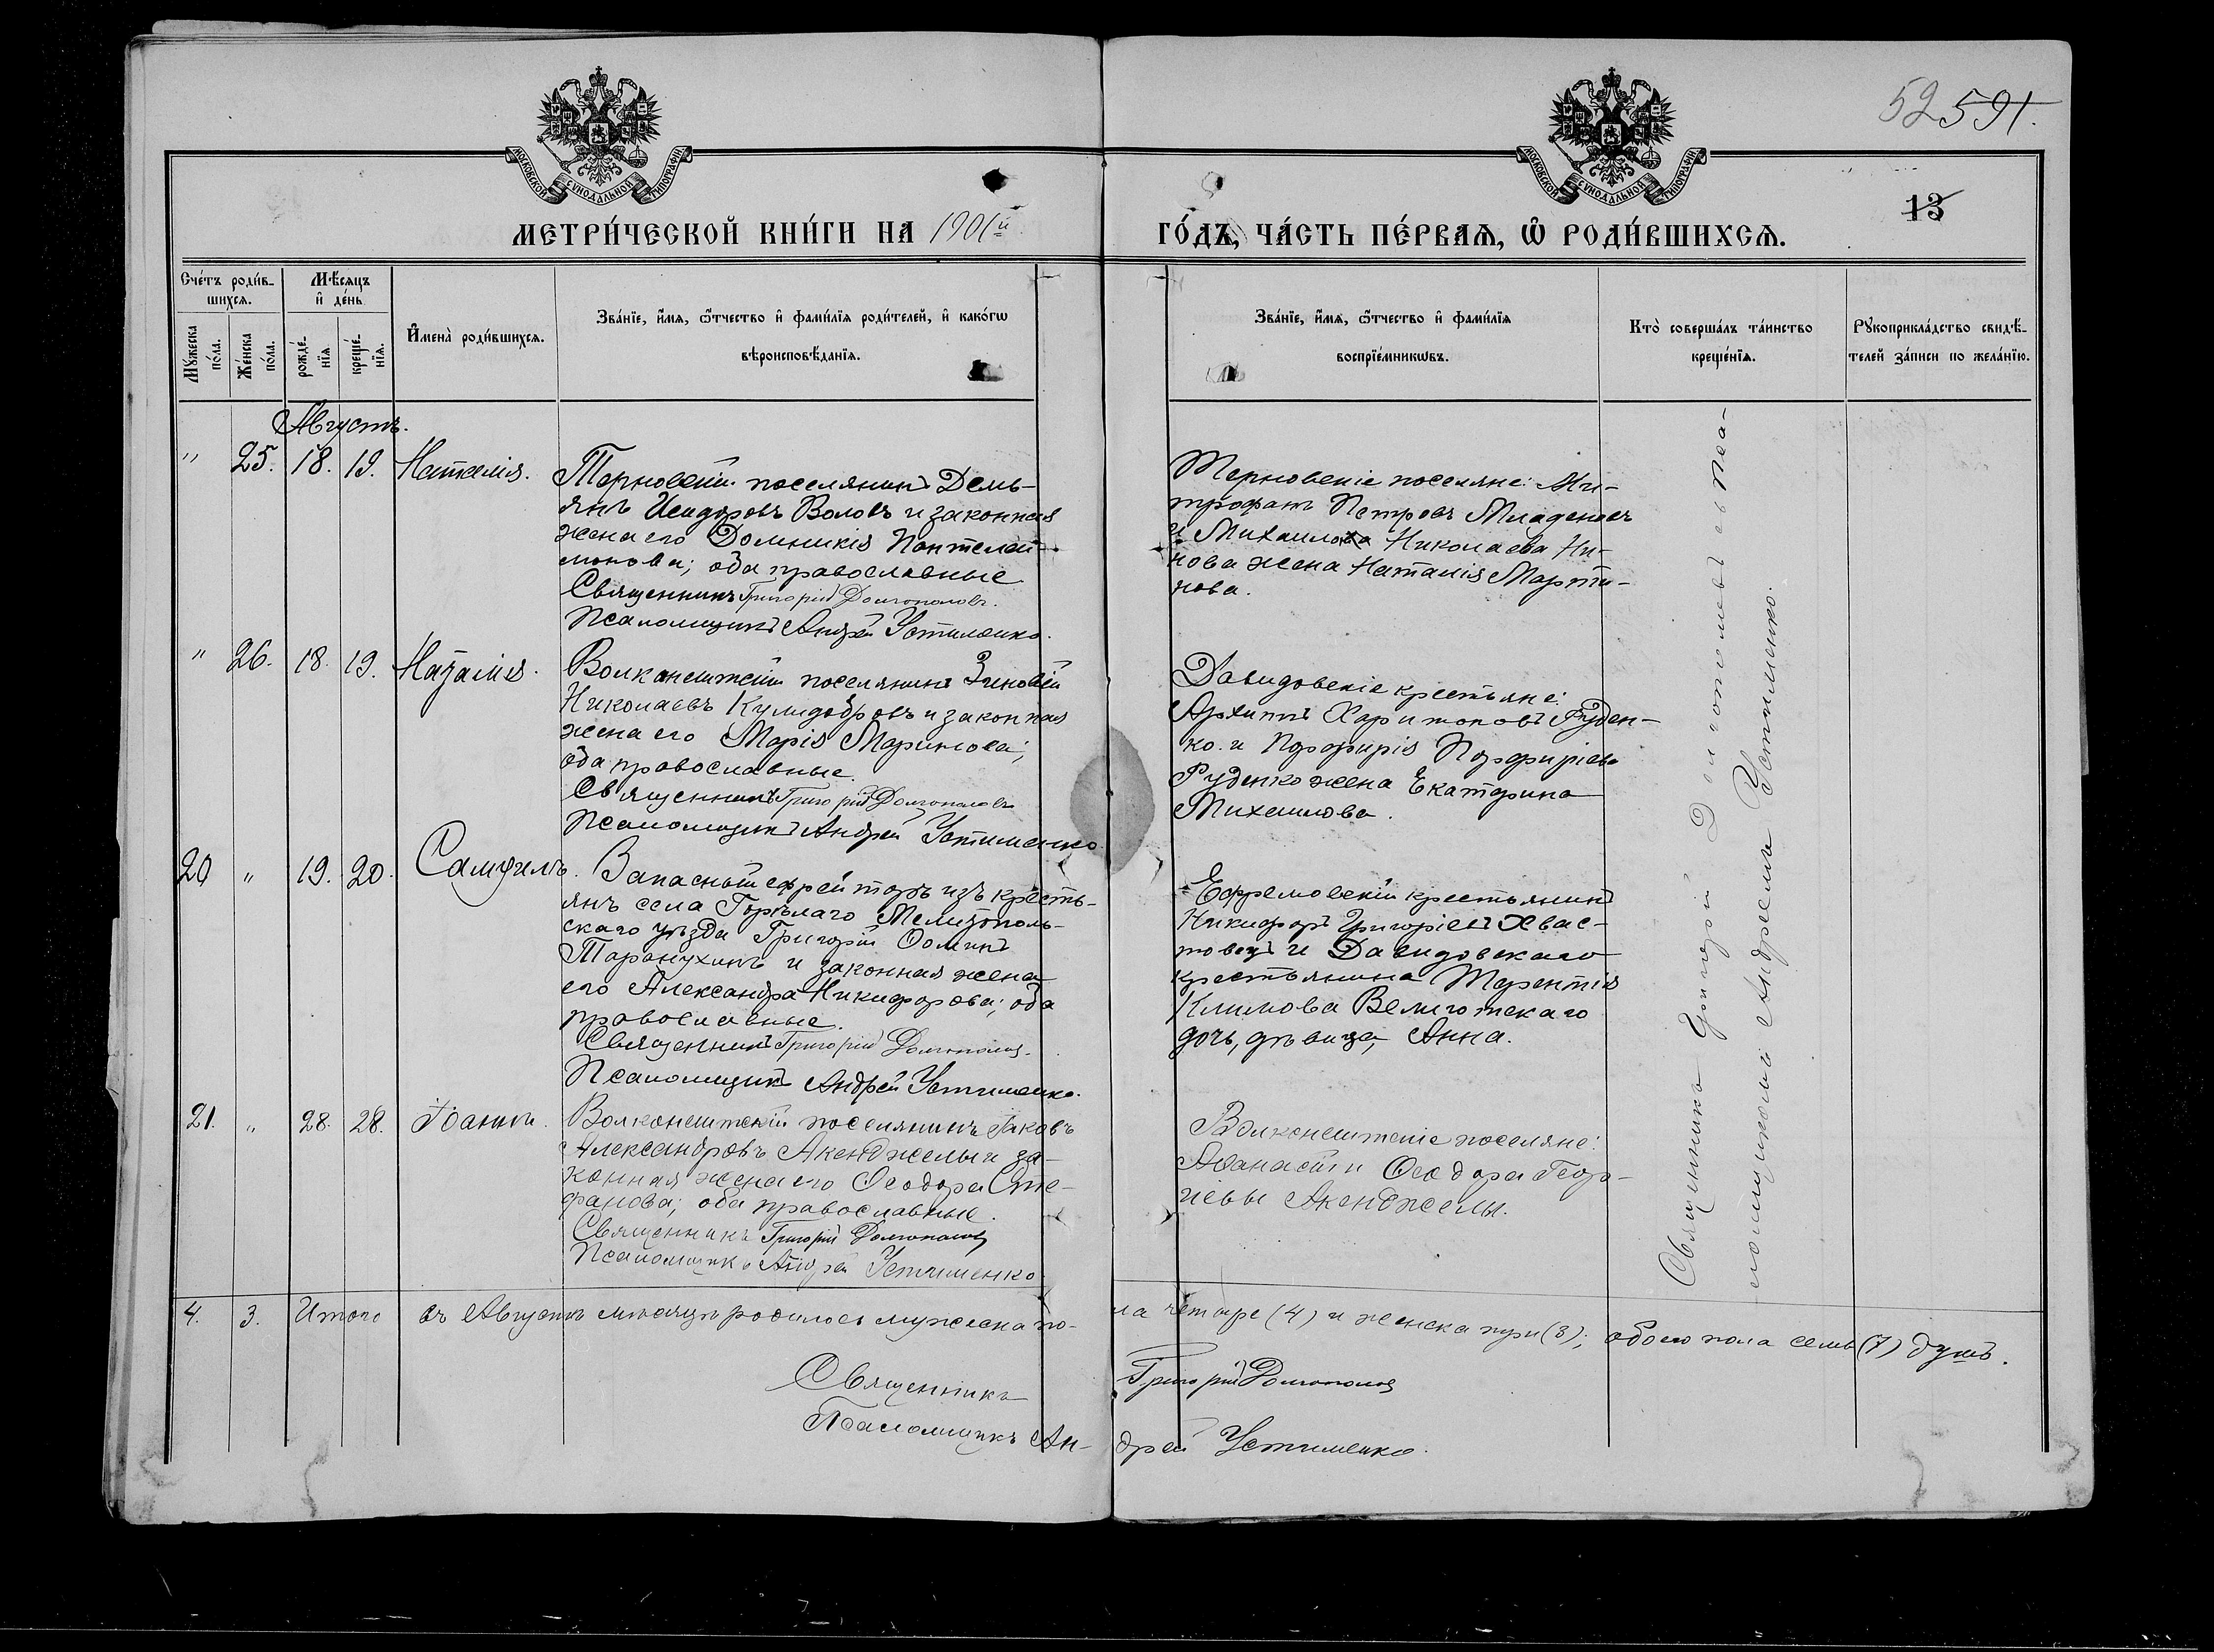 52 591.
13
МОСКОВСКОЙ СѴНОДАЛЬНОЙ ТИПОГРАФІИ
МОСКОВСКОЙ СѴНОДАЛЬНОЙ ТИПОГРАФІИ
МЕТРИ́ЧЕСКОЙ КНИ́ГИ НА 1901й ГО́ДЪ, ЧА́СТЬ ПЕ́РВАѦ, Ѡ҆ РОДИ́ВШИХСѦ.
Сче́тъ роди́в-
шихсѧ.
Мꙋ́жеска по́ла.
Же́нска по́ла.
Мѣ́сѧцъ
и҆ де́нь.
рожде́-
нїѧ
креще́-
нїѧ.
И҆мена̀ роди́вшихсѧ.
Зва́нїе, и҆́мѧ, ѻ҆́тчество и҆ фами́лїѧ роди́телей, и҆ како́гѡ
вѣроисповѣ́данїѧ.
Зва́нїе, и҆́мѧ, ѻ҆́тчество и҆ фами́лїѧ
воспрїе́мникѡвъ.
Кто̀ соверша́лъ та́инство
креще́нїѧ.
Рꙋкоприкла́дство свидѣ́-
телей за́писи по жела́нїю.
Августъ.
" 25. 18. 19. Наталія.
Терновскій поселянинъ Демь-
янъ Исидоровъ Воловъ и законная
жена его Домникія Пантелей-
монова; оба православные.
Священникъ Григорій Долгополовъ.
Псаломщикъ Андрей Устименко.
Терновскіе поселяне: Ми-
трофанъ Петровъ Младеновъ
и Михаила Николаева Ни-
нова жена Наталія Марти-
нова.
" 26. 18. 19. Наталія.
Волканештскій поселянинъ Зиновій
Николаевъ Кулидобровъ и законная
жена его Марія Маринова;
оба православные.
Священникъ Григорій Долгополовъ
Псаломщикъ Андрей Устименко
Давидовскіе крестьяне:
Архипъ Харитоновъ Руден-
ко и Порфирія Порфиріева
Руденко жена Екатерина
Михаилова.
20 " 19. 20. Самуилъ.
Запасный ефрейторъ изъ кресть-
янъ села Горѣлаго Мелитополь-
скаго уѣзда Григорій Ѳоминъ
Таранухинъ и законная жена
его Александра Никифорова; оба
православные.
Священникъ Григорій Долгополов.
Псаломщикъ Андрей Устименко.
Ефремовскій крестьянинъ
Никифоръ Григоріевъ Хвас-
товецъ и Давидовскаго
крестьянина Терентія
Климова Велиготскаго
дочь, дѣвица, Анна.
21. " 28. 28. Іоаннъ.
Волконештскій поселянинъ Іаковъ
Александровъ Акенджелы и за-
конная жена его Ѳеодора Сте-
фанова; оба православные.
Священникъ Григорій Долгополов
Псаломщикъ Андрей Устименко
Волконештскіе поселяне:
Аѳанасій и Ѳеодора Геор-
гіевы Акенджелы.
Священникъ Григорій Долгополовъ съ Пса-
ломщикомъ Андреемъ Устименко.
4. 3. Итого въ Августѣ мѣсяцѣ родилось мужеска по-
ла четыре (4) и женска три (3); обоего пола семь (7) душъ.
Священникъ Григорій Долгополов
Псаломщикъ Андрей Устименко.